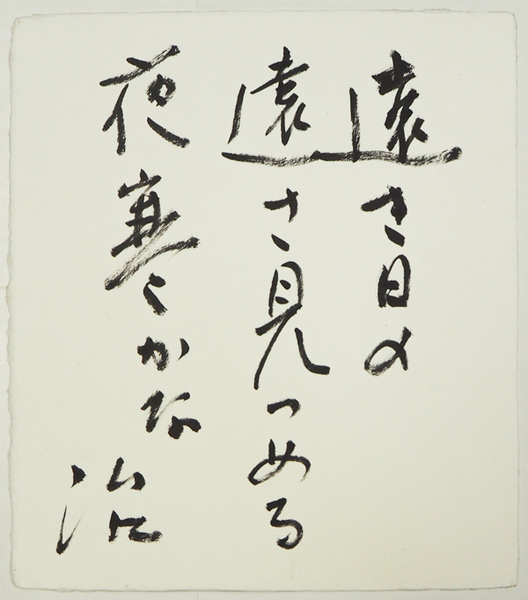 遠き日の
遠さ見つめる
夜寒かな
治